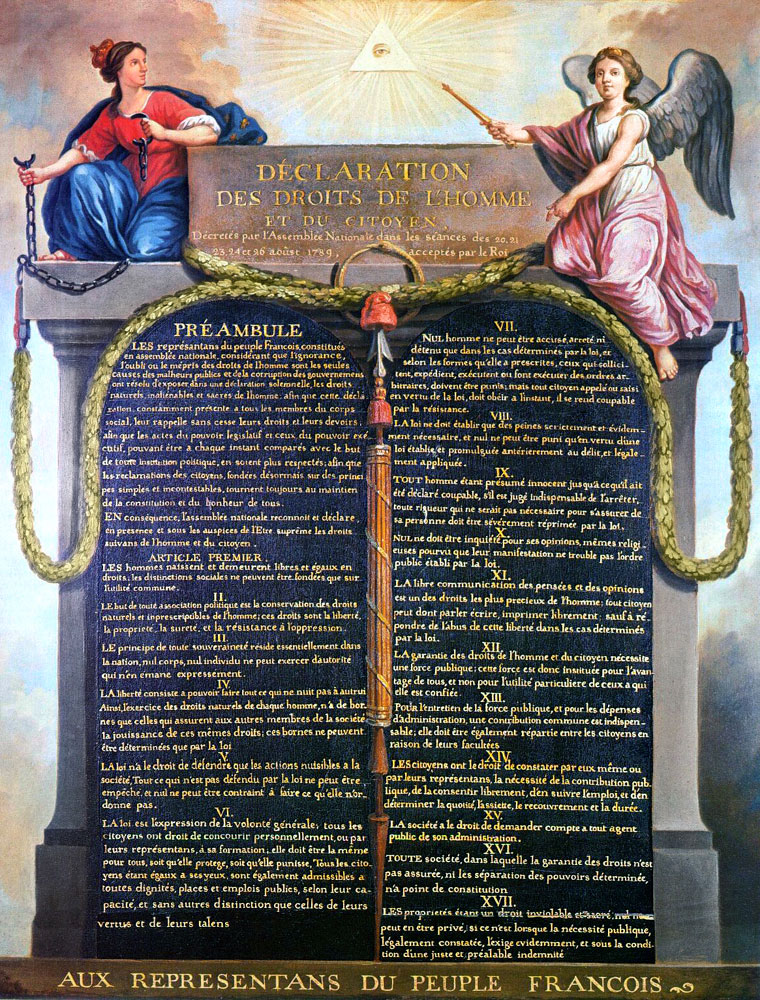 DÉCLARATION
DES DROITS DE L'HOMME
ET DU CITOYEN,
Décretés par l'Assemblée Nationale dans les séances des 20, 21
23, 24 et 26 aoûst 1789, acceptés par le Roi
PRÉAMBULE
LES représantans du peuple François, constitués
en assemblée nationale, considérant que l'ignorance,
l'oubli ou le mépris des droits de l'homme sont les seules
causes des malheurs publics et de la corruption des gouvernemens
ont résolu d'exposer, dans une déclaration solemnelle, les droits
naturels, inaliénables et sacrés de l'homme; afin que cette décla
ration, constamment présente a tous les membres du corps
social, leur rappelle sans cesse leurs droits et leurs devoirs;
afin que les actes du pouvoir législatif et ceux du pouvoir exé
cutif, pouvant être a chaque instant comparés avec le but
de toute institution politique, en soient plus respectés; afin que
les reclamations des citoyens, fondées désormais sur des princi
pes simples et incontestables, tournent toujours au maintien
de la constitution et du bonheur de tous.
EN conséquence, l'assemblée nationale reconnoit et déclare,
en presence et sous les auspices de l'Etre suprême les droits
suivans de l'homme et du citoyen.
ARTICLE PREMIER.
LES hommes naissent et demeurent libres et égaux en
droits; les distinctions sociales ne peuvent être fondées que sur
l'utilité commune.
II.
LE but de toute association politique est la conservation des droits
naturels et inprescriptibles de l'homme; ces droits sont la liberté,
la proprieté, la sureté, et la résistance à l'oppression.
III.
LE principe de toute souveraineté réside essentiellement dans
la nation, nul corps, nul individu ne peut exercer d'autorité
qui n'en émane expressément.
IV.
LA liberté consiste a pouvoir faire tout ce qui ne nuit pas à autrui
Ainsi, l'exercice des droits naturels de chaque homme, n'a de bor-
nes que celles qui assurent aux autres membres de la société
la jouissance de ces mêmes droits; ces bornes ne peuvent
être déterminées que par la loi
V.
LA loi n'a le droit de défendre que les actions nuisibles a la
société, Tout ce qui n'est pas défendu par la loi ne peut être
empêché, et nul ne peut être contraint à faire ce qu'elle n'or-
donne pas.
VI.
LA loi est l'expression de la volonté générale; tous les
citoyens ont droit de concourir personnellement, ou par
leurs représentans, à sa formation; elle doit être la même
pour tous, soit qu'elle protege, soit qu'elle punisse, Tous les cito-
yens étant égaux à ses yeux, sont également admissibles a
toutes dignités, places et emplois publics, selon leur ca-
pacité, et sans autres distinction que celles de leurs
vertus et de leurs talens
VII.
NUL homme ne peut être accusé, arreté, ni
détenu que dans les cas déterminés par la loi, et
selon les formes qu'elle a prescrites, ceux qui sollici-
tent, expédient, exécutent ou font exécuter des ordres ar-
bitraires, doivent être punis; mais tout citoyen appelé ou saisi
en vertu de la loi, doit obéir a l'instant, il se rend coupable
par la résistance.
VIII.
LA loi ne doit établir que des peines strictement et évidem-
ment nécessaire, et nul ne peut être puni qu'en vertu d'une
loi établie, et promulguée antérierement au délit, et légale-
ment appliquée.
IX.
TOUT homme étant présumé innocent jusqu'à ce qu'il ait
été déclaré coupable, s'il est jugé indispensable de l'arrêter,
toute rigueur qui ne serait pas nécessaire pour s'assurer de
sa personne doit être sévèrement réprimée par la loi.
X.
NUL ne doit être inquiété pour ses opinions, mêmes religi-
euses pourvu que leur manifestation ne trouble pas l'ordre
public établi par la loi.
XI.
LA libre communication des pensées et des opinions
est un des droits les plus precieux de l'homme; tout citoyen
peut dont parler, écrire, imprimer librement; sauf à ré-
pondre de l'abus de cette liberté dans les cas déterminés
par la loi.
XII.
LA garantie des droits de l'homme et du citoyen nécessite
une force publique; cette force est donc instituée pour l'avan-
tage de tous, et non pour l'utilité particuliere de ceux a qui
elle est confiée.
XIII.
POUR l'entretien de la force publique, et pour les dépenses
d'administration, une contribution commune est indispen-
sable; elle doit être également répartie entre les citoyens en
raison de leurs facultées
XIV.
LES citoyens ont le droit de constater par eux même ou
par leurs représentans, la nécessité de la contribution pub-
lique, de la consentir librement, d'en suivre l'emploi, et d'en
déterminer la quotité, l'assiette, le recouvrement et la durée.
XV.
LA société a le droit de demander compte a tout agent
public de son administration.
XVI.
TOUTE société, dans laquelle la garantie des droits n'est
pas assurée, ni les séparation des pouvoirs déterminée,
n'a point de constitution
XVII.
LES proprietés étant un droit inviolable et sacré, nul ne
peut en être privé, si ce n'est lorsque la nécessité publique,
légalement constatée, l'exige evidemment, et sous la condi
tion d'une juste et préalable indemnité
AUX REPRESENTANS DU PEUPLE FRANCOIS